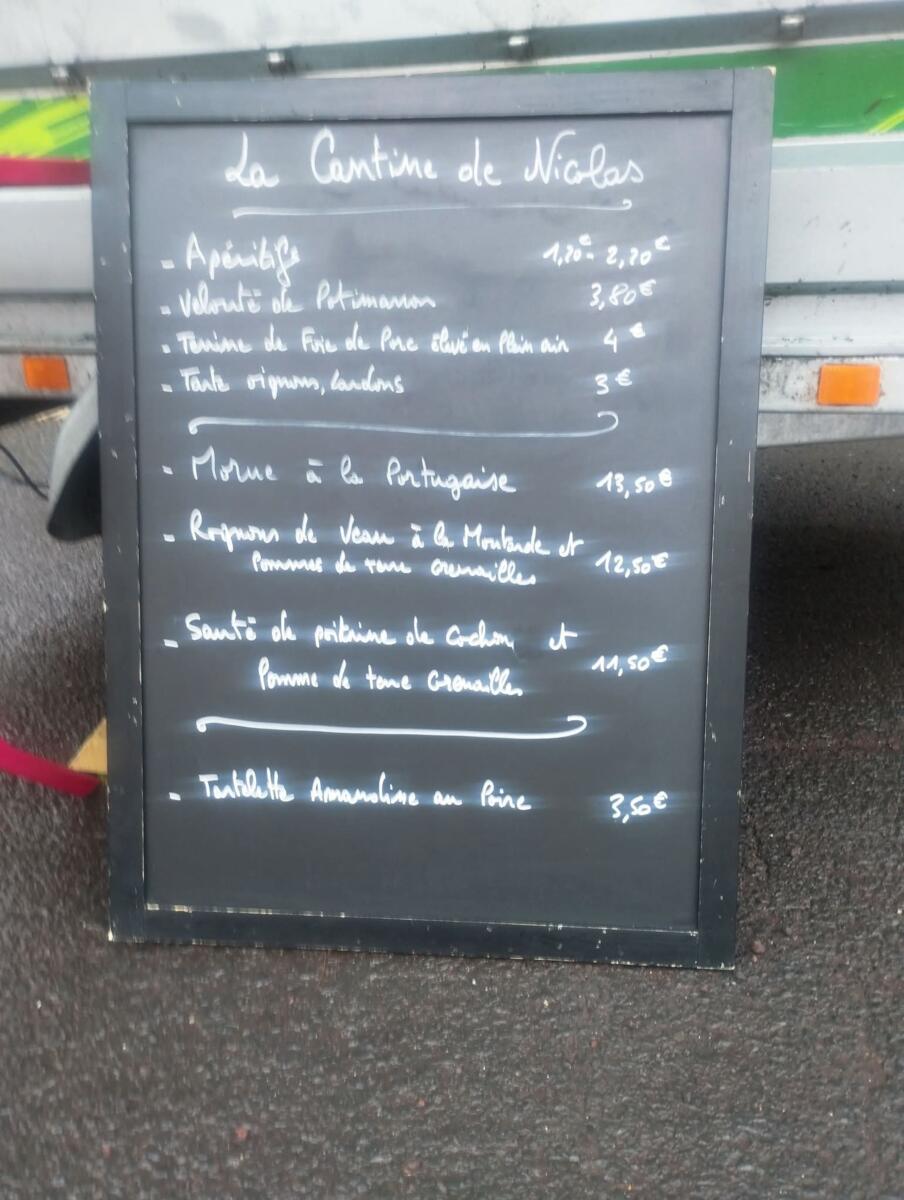 La Cantine de Nicolas
- Apéritifs 1,20€ - 2,20€
- Velouté de Potimarron 3,80€
- Terrine de Foie de Porc élevé en Plein air 4€
- Tarte oignons, lardons 3€
- Morue à la Portugaise 13,50€
- Rognons de Veau à la Moutarde et
Pommes de terre Grenailles 12,50€
- Sauté de poitrine de cochon et
Pomme de terre Grenailles 11,50€
- Tartelette Amandine au Poire 3,50€